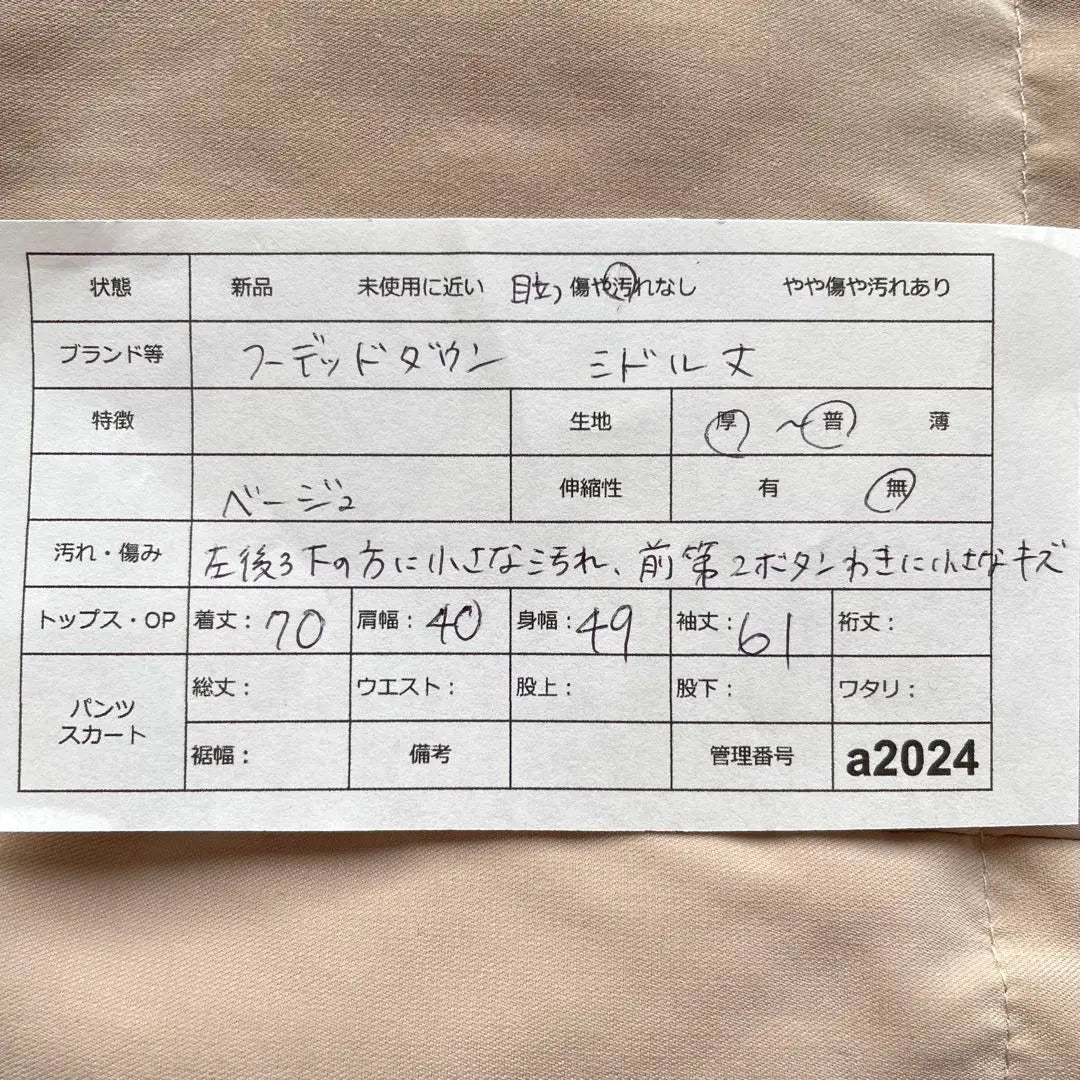 状態 新品 未使用に近い 目立つ 傷や汚れなし やや傷や汚れあり
ブランド等 フーデッドダウン ミドル丈
特徴 生地 厚 〜 普 薄
ベージュ 伸縮性 有 無
汚れ・傷み 左後ろ下の方に小さな汚れ、前第2ボタンわきに小さなキズ
トップス・OP 着丈：70 肩幅：40 身幅：49 袖丈：61 裄丈：
パンツ スカート 総丈： ウエスト： 股上： 股下： ワタリ：
裾幅： 備考 管理番号 a2024